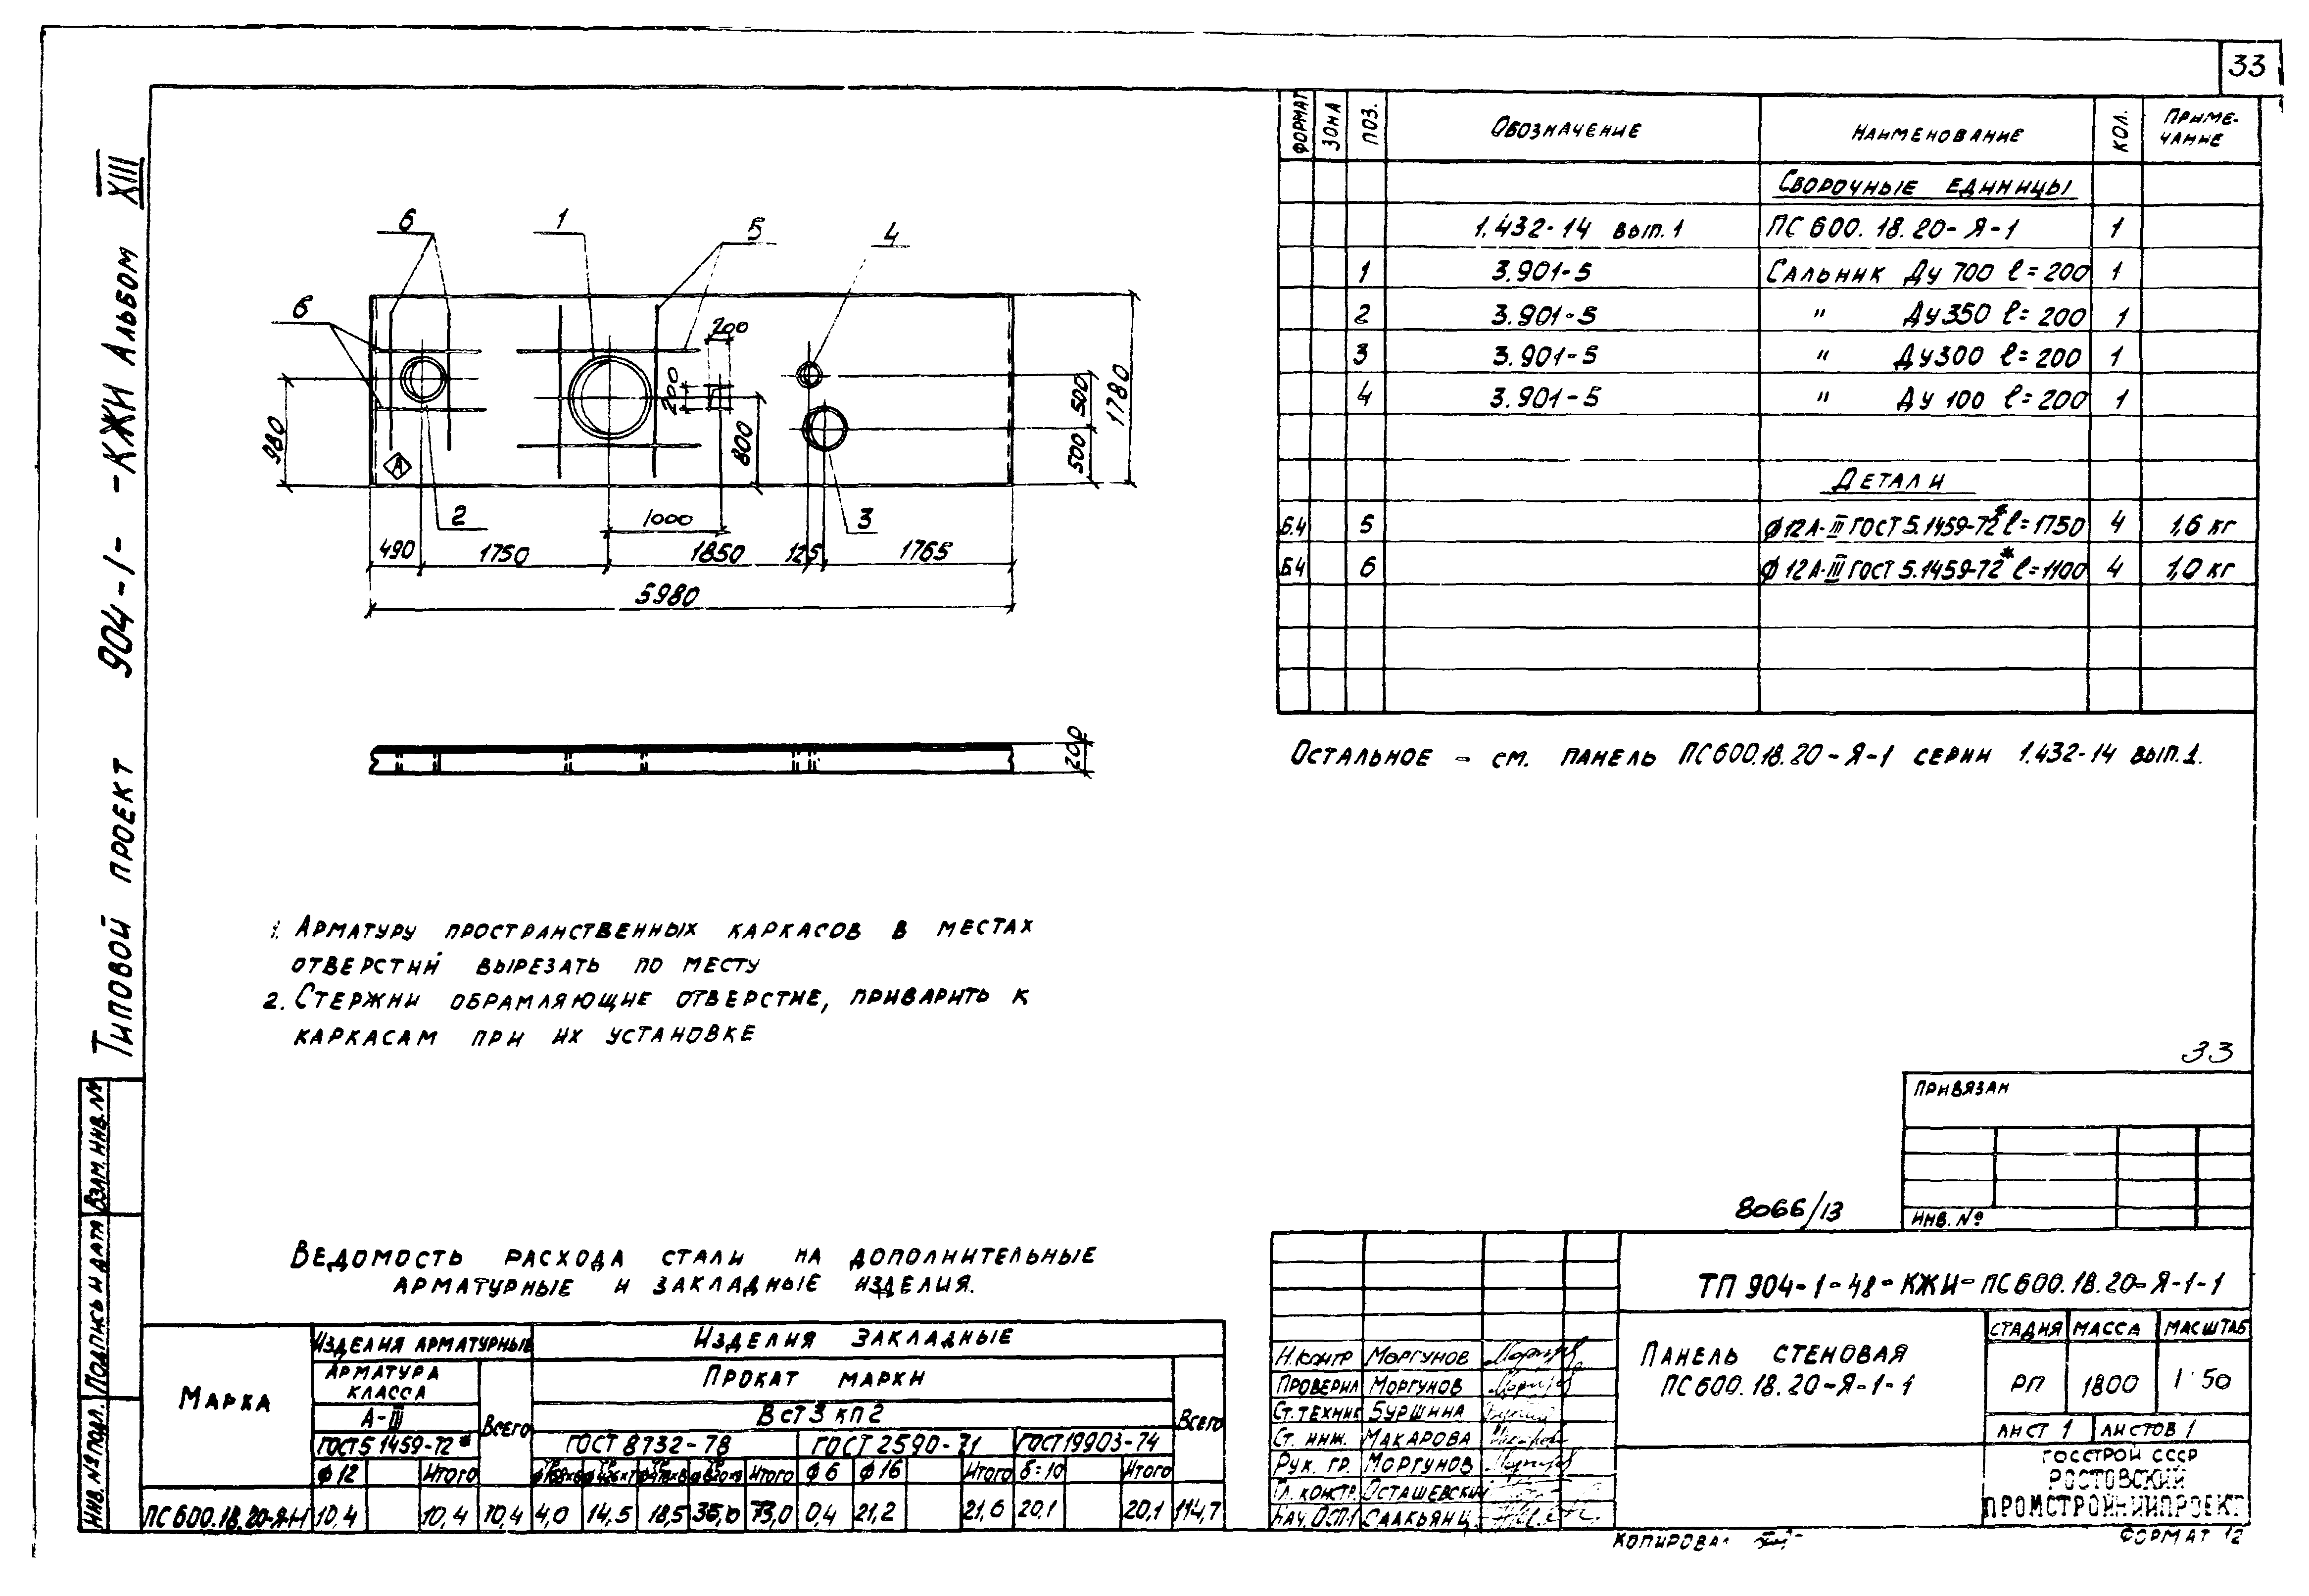 33
Типовой проект 904-1- -КЖИ Альбом XIII
Формат Зона Поз. Обозначение Наименование Кол. Примечание
Сборочные единицы
1.432-14 вып.1 ПС 600.18.20-Я-1 1
1 3.901-5 Сальник Ду 700 ℓ=200 1
2 3.901-5 " Ду350 ℓ=200 1
3 3.901-5 " Ду300 ℓ=200 1
4 3.901-5 " Ду 100 ℓ=200 1
Детали
Б.4 5 ф12А-III ГОСТ 5.1459-72* ℓ=1750 4 1,6 кг
Б.4 6 ф12А-III ГОСТ 5.1459-72* ℓ=1100 4 1,0 кг
Остальное - см. панель ПС600.18.20-Я-1 серии 1.432-14 вып.1.
6 1 5 4
6
200
200
980
А
800
500
500
1780
2
1000
3
490 1750 1850 125 1765
5980
200
1. Арматуру пространственных каркасов в местах
отверстий вырезать по месту
2. Стержни обрамляющие отверстие, приварить к
каркасам при их установке
33
Привязан
Инв. №
8066/13
Взам. инв. №
Подпись и дата
Инв. № подл.
Ведомость расхода стали на дополнительные
арматурные и закладные изделия.
Марка
Изделия арматурные
Изделия закладные
Арматура класса
Прокат марки
А-III
Всего
Вст3кп2
Всего
ГОСТ 5 1459-72*
ГОСТ 8732-78 ГОСТ 2590-71 ГОСТ19903-74
ф12 Итого Итого ф6 ф16 Итого δ=10 Итого
ПС600.18.20-Я-1-1 10,4 10,4 10,4 4,0 14,5 18,5 36,0 73,0 0,4 21,2 21,6 20,1 20,1 114,7
ТП 904-1-48-КЖИ-ПС600.18.20-Я-1-1
Панель стеновая
ПС600.18.20-Я-1-1
Стадия Масса Масштаб
РП 1800 1:50
Лист 1 Листов 1
Госстрой СССР
Ростовский
Промстройниипроект
Н.контр Моргунов
Проверил Моргунов
Ст.техник Буршина
Ст. инж. Макарова
Рук. гр. Моргунов
Гл. констр. Осташевский
Нач. ОСП-1 Саакьянц
Копировал
Формат 12